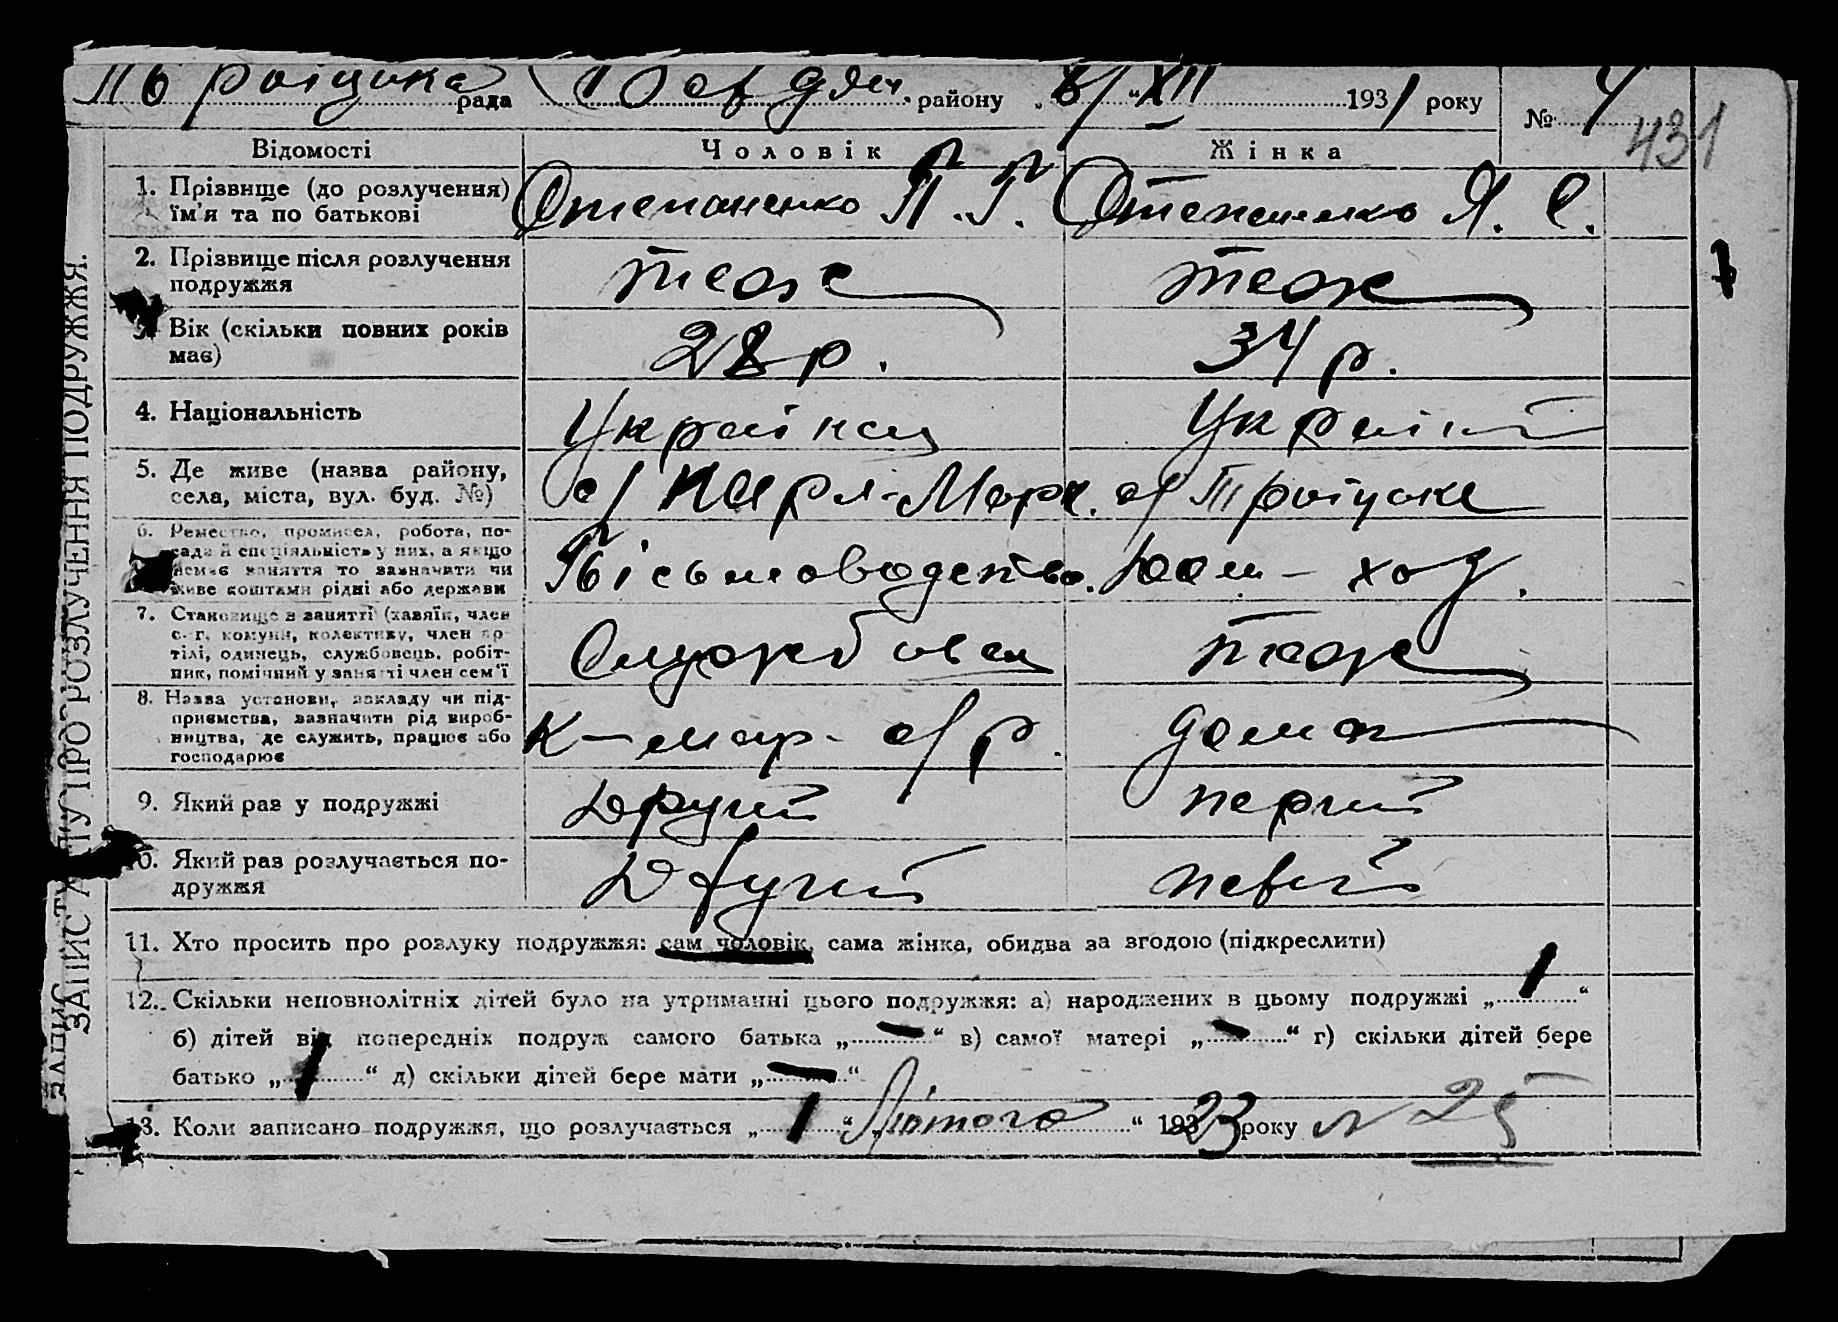 Троїцька рада Бердян. району „6/“ XII 1931 року № 4
431
Відомості Чоловік Жінка
1. Прізвище (до розлучення) Степаненко П. Г. Степаненко Я. С.
їм'я та по батькові
2. Прізвище після розлучення теж теж
подружжя
3. Вік (скільки повних років 28 р. 34 р.
має)
4. Національність Українец Україн
5. Де живе (назва району, с/ Карл-Маркс. с/ Троїцьке
села, міста, вул. буд. №)
6. Ремество, промисел, робота, по-
сада й спеціяльність у них, а якщо Письмоводство. Дом-хоз.
немає заняття то зазначити чи
живе коштами рідні або держави
7. Становище в занятті (хазяїн, член
с.-г. комуни, колективу, член ар- Службовец теж
тілі, одинець, службовець, робіт-
ник, помічний у занятті член сем'ї
8. Назва установи, закладу чи під-
приємства, зазначити рід вироб- К-мар- с/р. дома
ництва, де служить, працює або
господарює
9. Який раз у подружжі Другий перший
10. Який раз розлучається по- Другий
дружжя
11. Хто просить про розлуку подружжя: сам чоловік, сама жінка, обидва за згодою (підкреслити)
12. Скільки неповнолітніх дітей було на утриманні цього подружжя: а) народжених в цьому подружжі „1“
б) дітей від попередніх подруж самого батька „—“ в) самої матері „—“ г) скільки дітей бере
батько „1“ д) скільки дітей бере мати „—“
13. Коли записано подружжя, що розлучається „1“ „Лютого“ 1923 року № 25
ЗАПИС АКТУ ПРО РОЗЛУЧЕННЯ ПОДРУЖЖЯ.